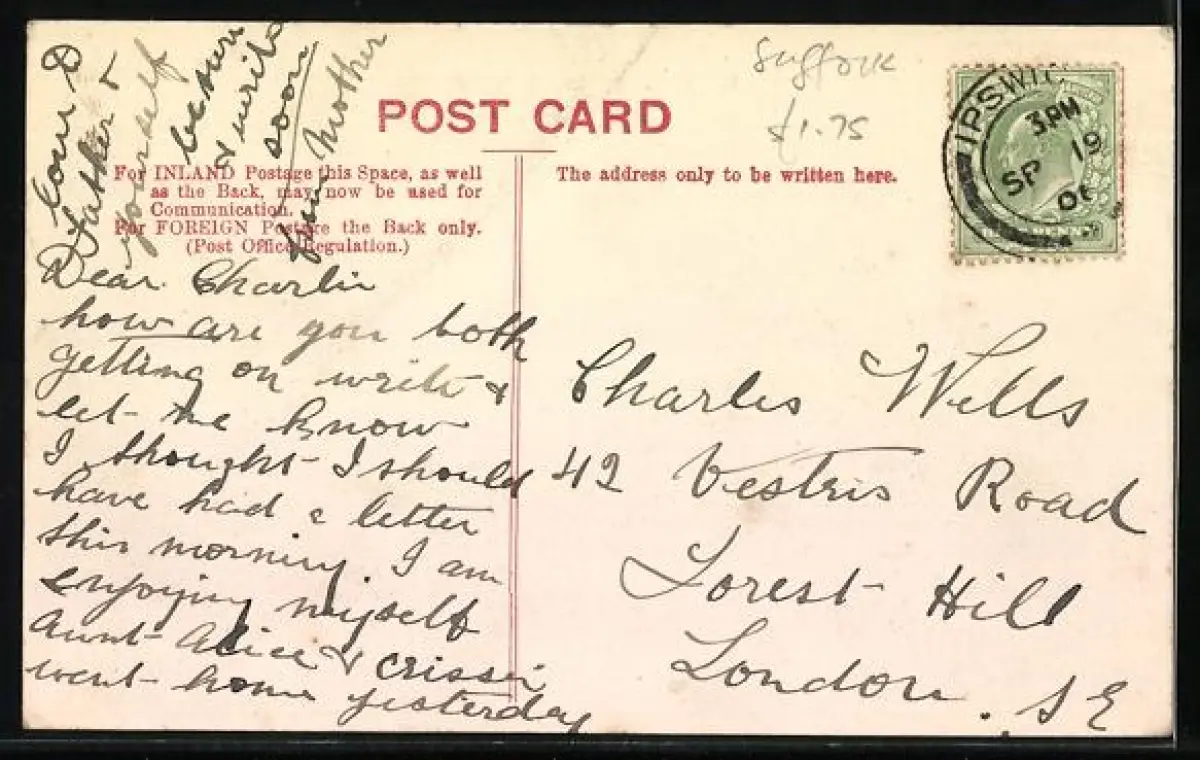 Suffolk
£1.75
POST CARD
For INLAND Postage this Space, as well
as the Back, may now be used for
Communication.
For FOREIGN Postage the Back only.
(Post Office Regulation.)
The address only to be written here.
IPSWIC
3 PM
SP 19
06
Dear Charlie
how are you both
getting on write &
let me know
I thought I should
have had a letter
this morning. I am
enjoying myself
Aunt Alice & Crissie
went home yesterday
Father &
yourself
be sure
& write
soon
Mother
Charles Wells
42 Vestris Road
Forest Hill
London. S E